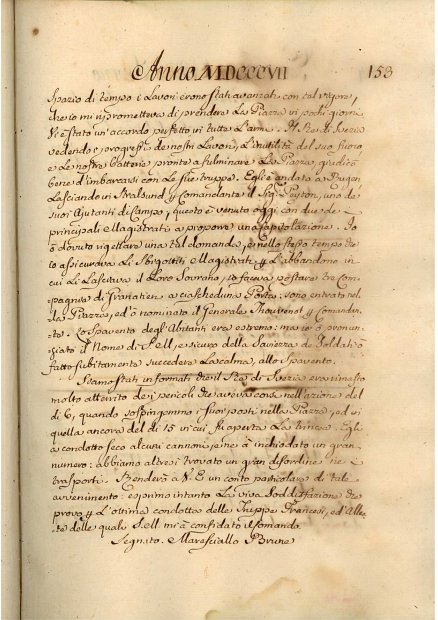 Anno MDCCCVII 153
Spazio di tempo i Lavori erono stati avanzati con tal vigore,
che io mi riprometteva di prendere La Piazza in pochi giorni.
Vi è stato un'accordo perfetto in tutte L'arme. Il Re di Svezia
vedendo i progressi de nostri Lavori, L'inutilità del suo fuoco
e Le nostre batterie pronte a fulminare La Piazza, giudicò
bene d'imbarcarsi con Le sue truppe. Egli è andato a Rugen
Lasciando in Stralsund per Comandante il Sig. Peyron, uno de
suoi Ajutanti di Campo, questo è venuto oggi con due de
principali Magistrati a proporre una capitolazione. Io
ò dovuto rigettare una tal domanda, e nello stesso tempo che
io assicurava Li Magistrati per L'abbandono in
cui Li lasciava il Loro Sovrano, io faceva postare tre Com-
pagnie di Granatieri a ciascheduna Porta: sono entrato nella
Piazza, ed ò nominato il Generale Thouvenot per Comandan-
te. Lo Spavento degli Abitanti era estremo: ma io ò pronun-
ziato il Nome di S. M., e sicuro della Saviezza de Soldati ò
fatto subitamente succedere La calma, allo Spavento.
Siamo stati informati che il Re di Svezia era rimasto
molto atterrito de i pericoli che aveva corsi nell'azione del
di 6, quando sospingemmo i suoi posti nella Piazza, ed in
quella ancora del di 15 in cui fu aperta La trincea. Egli
a condotto seco alcuni cannoni, e ne à inchiodato un gran
numero: abbiamo altresi trovato un gran disordine ne
trasporti. Renderò a V. E. un conto particolare di tale
avvenimento: esprimo intanto La viva Soddisfazione che
provo per L'ottima condotta delle Truppe Francesi, ed Alle-
ate delle quali S. M. mi à confidato il Comando.
Segnito. Maresciallo Brune